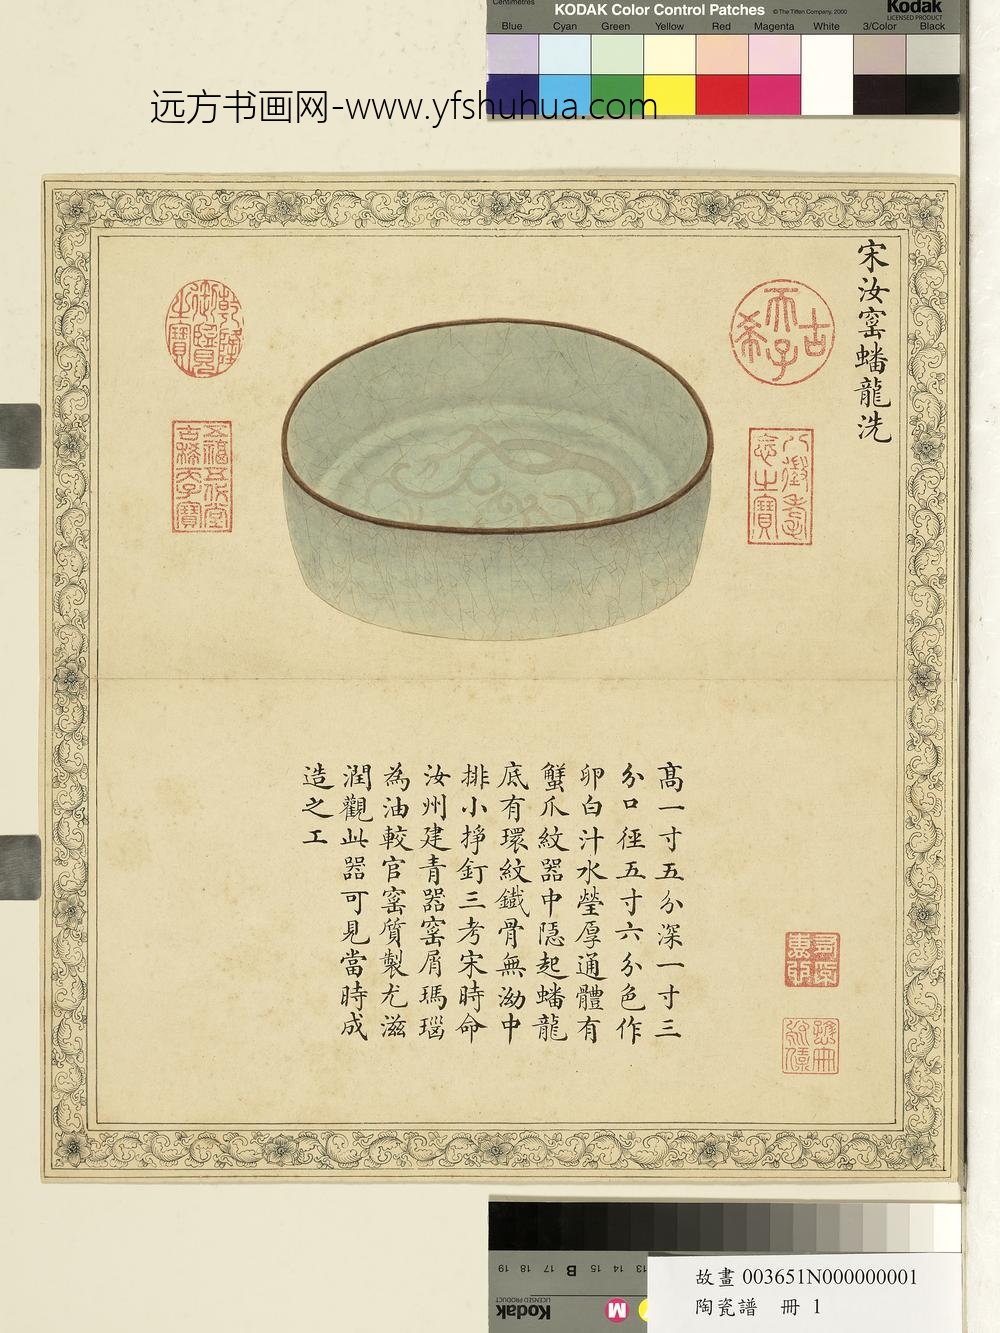 Centimetres
KODAK Color Control Patches ©The Tiffen Company, 2000
Kodak
LICENSED PRODUCT
Blue Cyan Green Yellow Red Magenta White 3/Color Black
远方书画网-www.yfshuhua.com
宋汝窰蟠龍洗
古希天子
八徵耄念之寶
乾隆御覽之寶
五福五代堂古稀天子寶
高一寸五分深一寸三
分口徑五寸六分色作
卵白汁水瑩厚通體有
蟹爪紋器中隱起蟠龍
底有環紋鐵骨無泑中
排小掙釘三考宋時命
汝州建青器窰屑瑪瑙
為油較官窰質製尤滋
潤觀此器可見當時成
造之工
19 18 17 B 15 14 13
Kodak
LICENSED PRODUCT
M
故畫 003651N000000001
陶瓷譜 冊 1